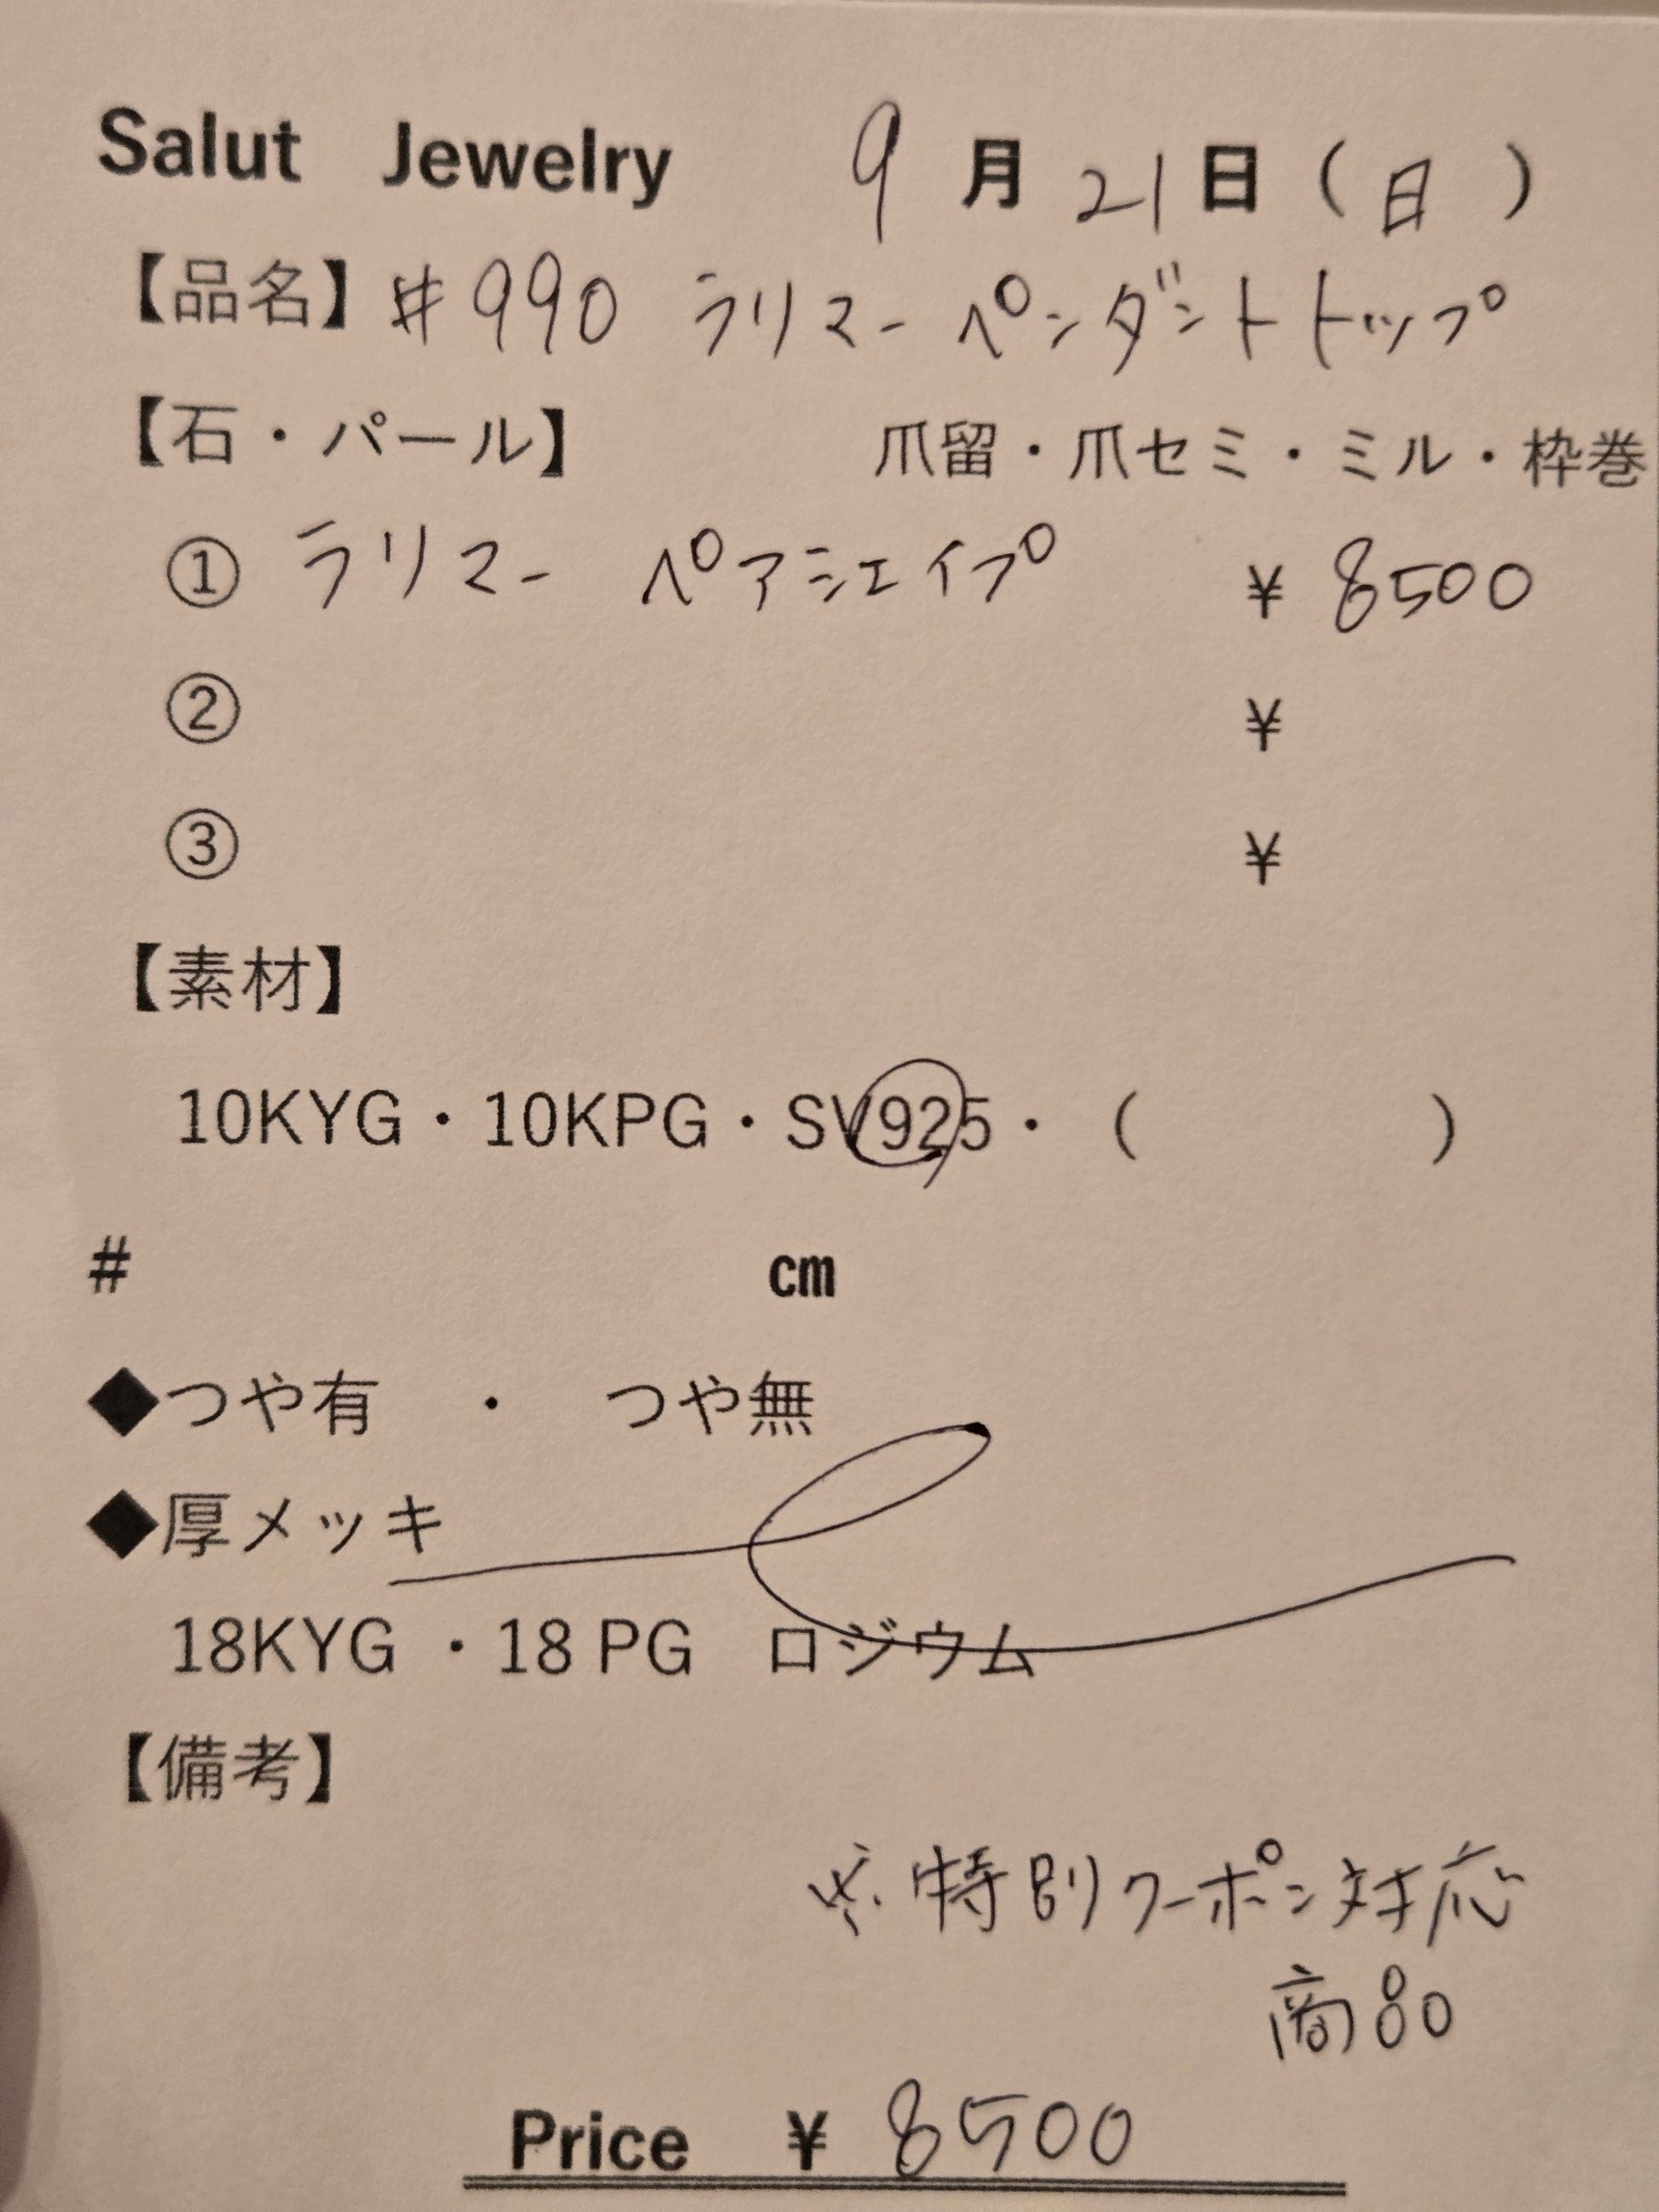 Salut Jewelry 9月21日(日)
【品名】#990 ラリマー ペンダントトップ
【石・パール】 爪留・爪セミ・ミル・枠巻
① ラリマー ペアシェイプ ¥8500
② ¥
③ ¥
【素材】
10KYG・10KPG・SV925・( )
# cm
◆つや有 ・ つや無
◆厚メッキ
18KYG ・18 PG ロジウム
【備考】
※特別クーポン対応
商品
Price ¥ 8500